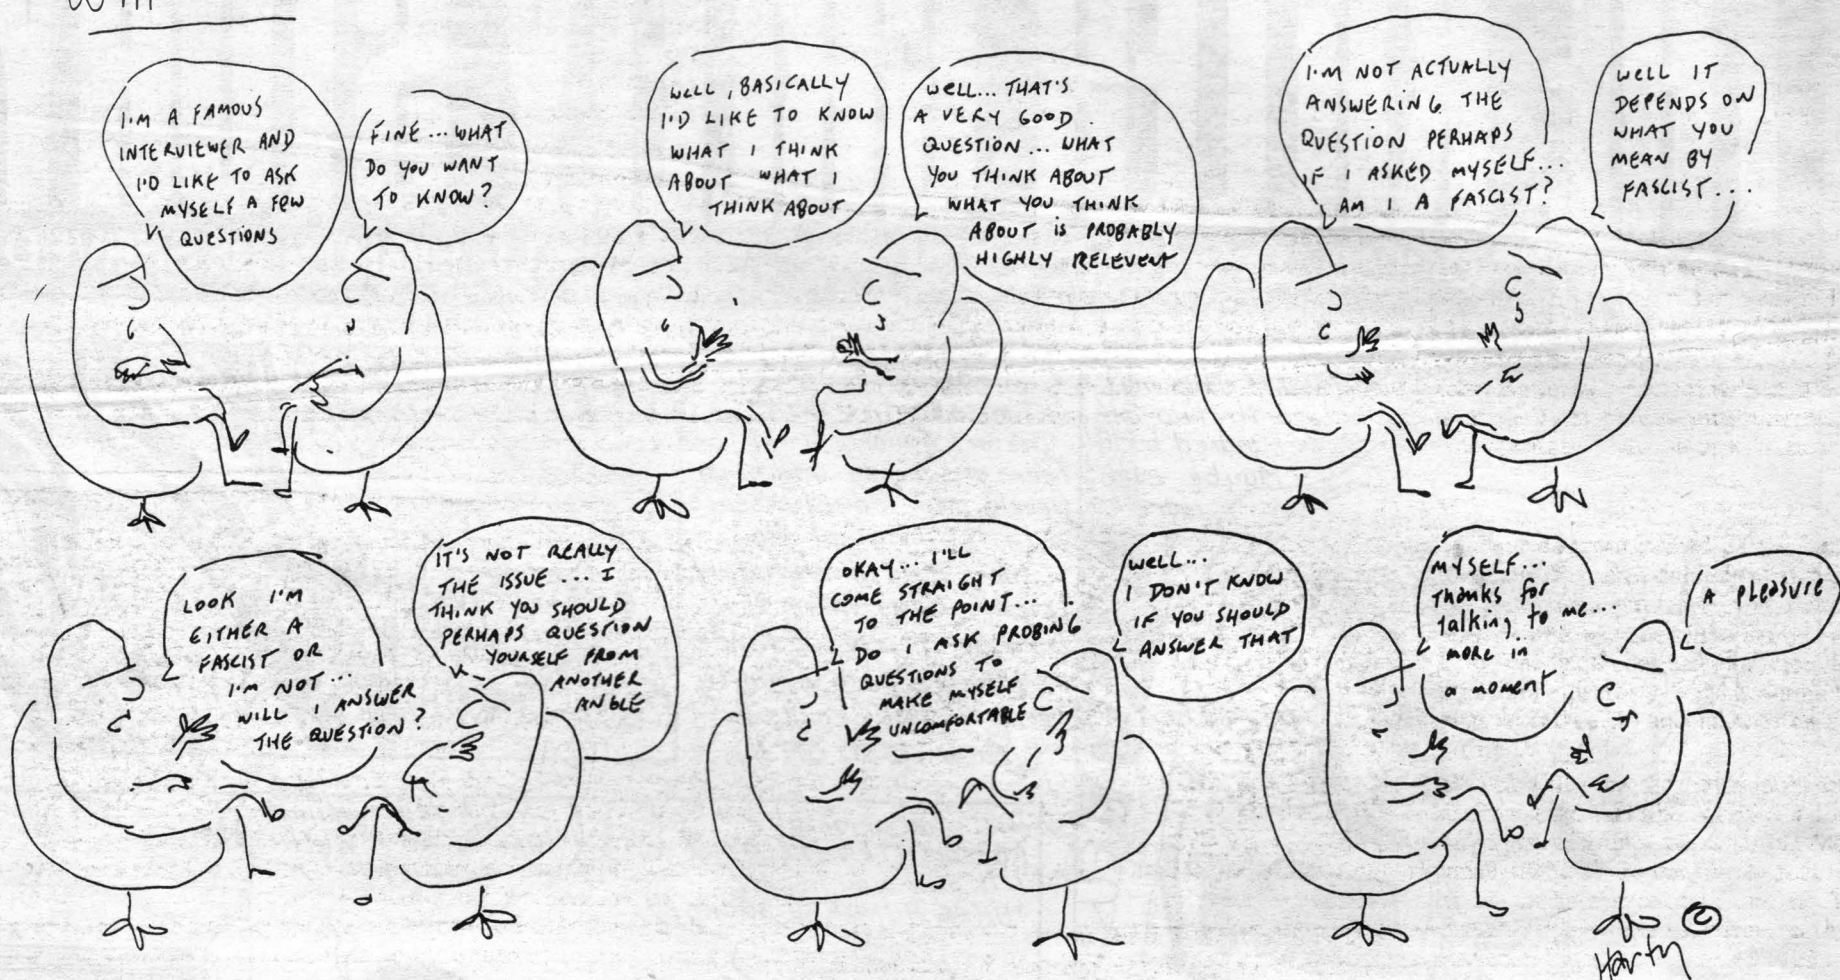 I'M A FAMOUS
INTERVIEWER AND
I'D LIKE TO ASK
MYSELF A FEW
QUESTIONS
FINE... WHAT
DO YOU WANT
TO KNOW?
WELL, BASICALLY
I'D LIKE TO KNOW
WHAT I THINK
ABOUT WHAT I
THINK ABOUT
WELL... THAT'S
A VERY GOOD
QUESTION... WHAT
YOU THINK ABOUT
WHAT YOU THINK
ABOUT is PROBABLY
HIGHLY RELEVENT
I'M NOT ACTUALLY
ANSWERING THE
QUESTION PERHAPS
IF I ASKED MYSELF...
AM I A FASCIST?
WELL IT
DEPENDS ON
WHAT YOU
MEAN BY
FASCIST...
LOOK I'M
EITHER A
FASCIST OR
I'M NOT...
WILL I ANSWER
THE QUESTION?
IT'S NOT REALLY
THE ISSUE... I
THINK YOU SHOULD
PERHAPS QUESTION
YOURSELF FROM
ANOTHER
ANGLE
OKAY... I'LL
COME STRAIGHT
TO THE POINT...
DO I ASK PROBING
QUESTIONS TO
MAKE MYSELF
UNCOMFORTABLE
WELL...
I DON'T KNOW
IF YOU SHOULD
ANSWER THAT
MYSELF...
Thanks for
Talking to me...
more in
a moment
A PLEASURE
©
Harty